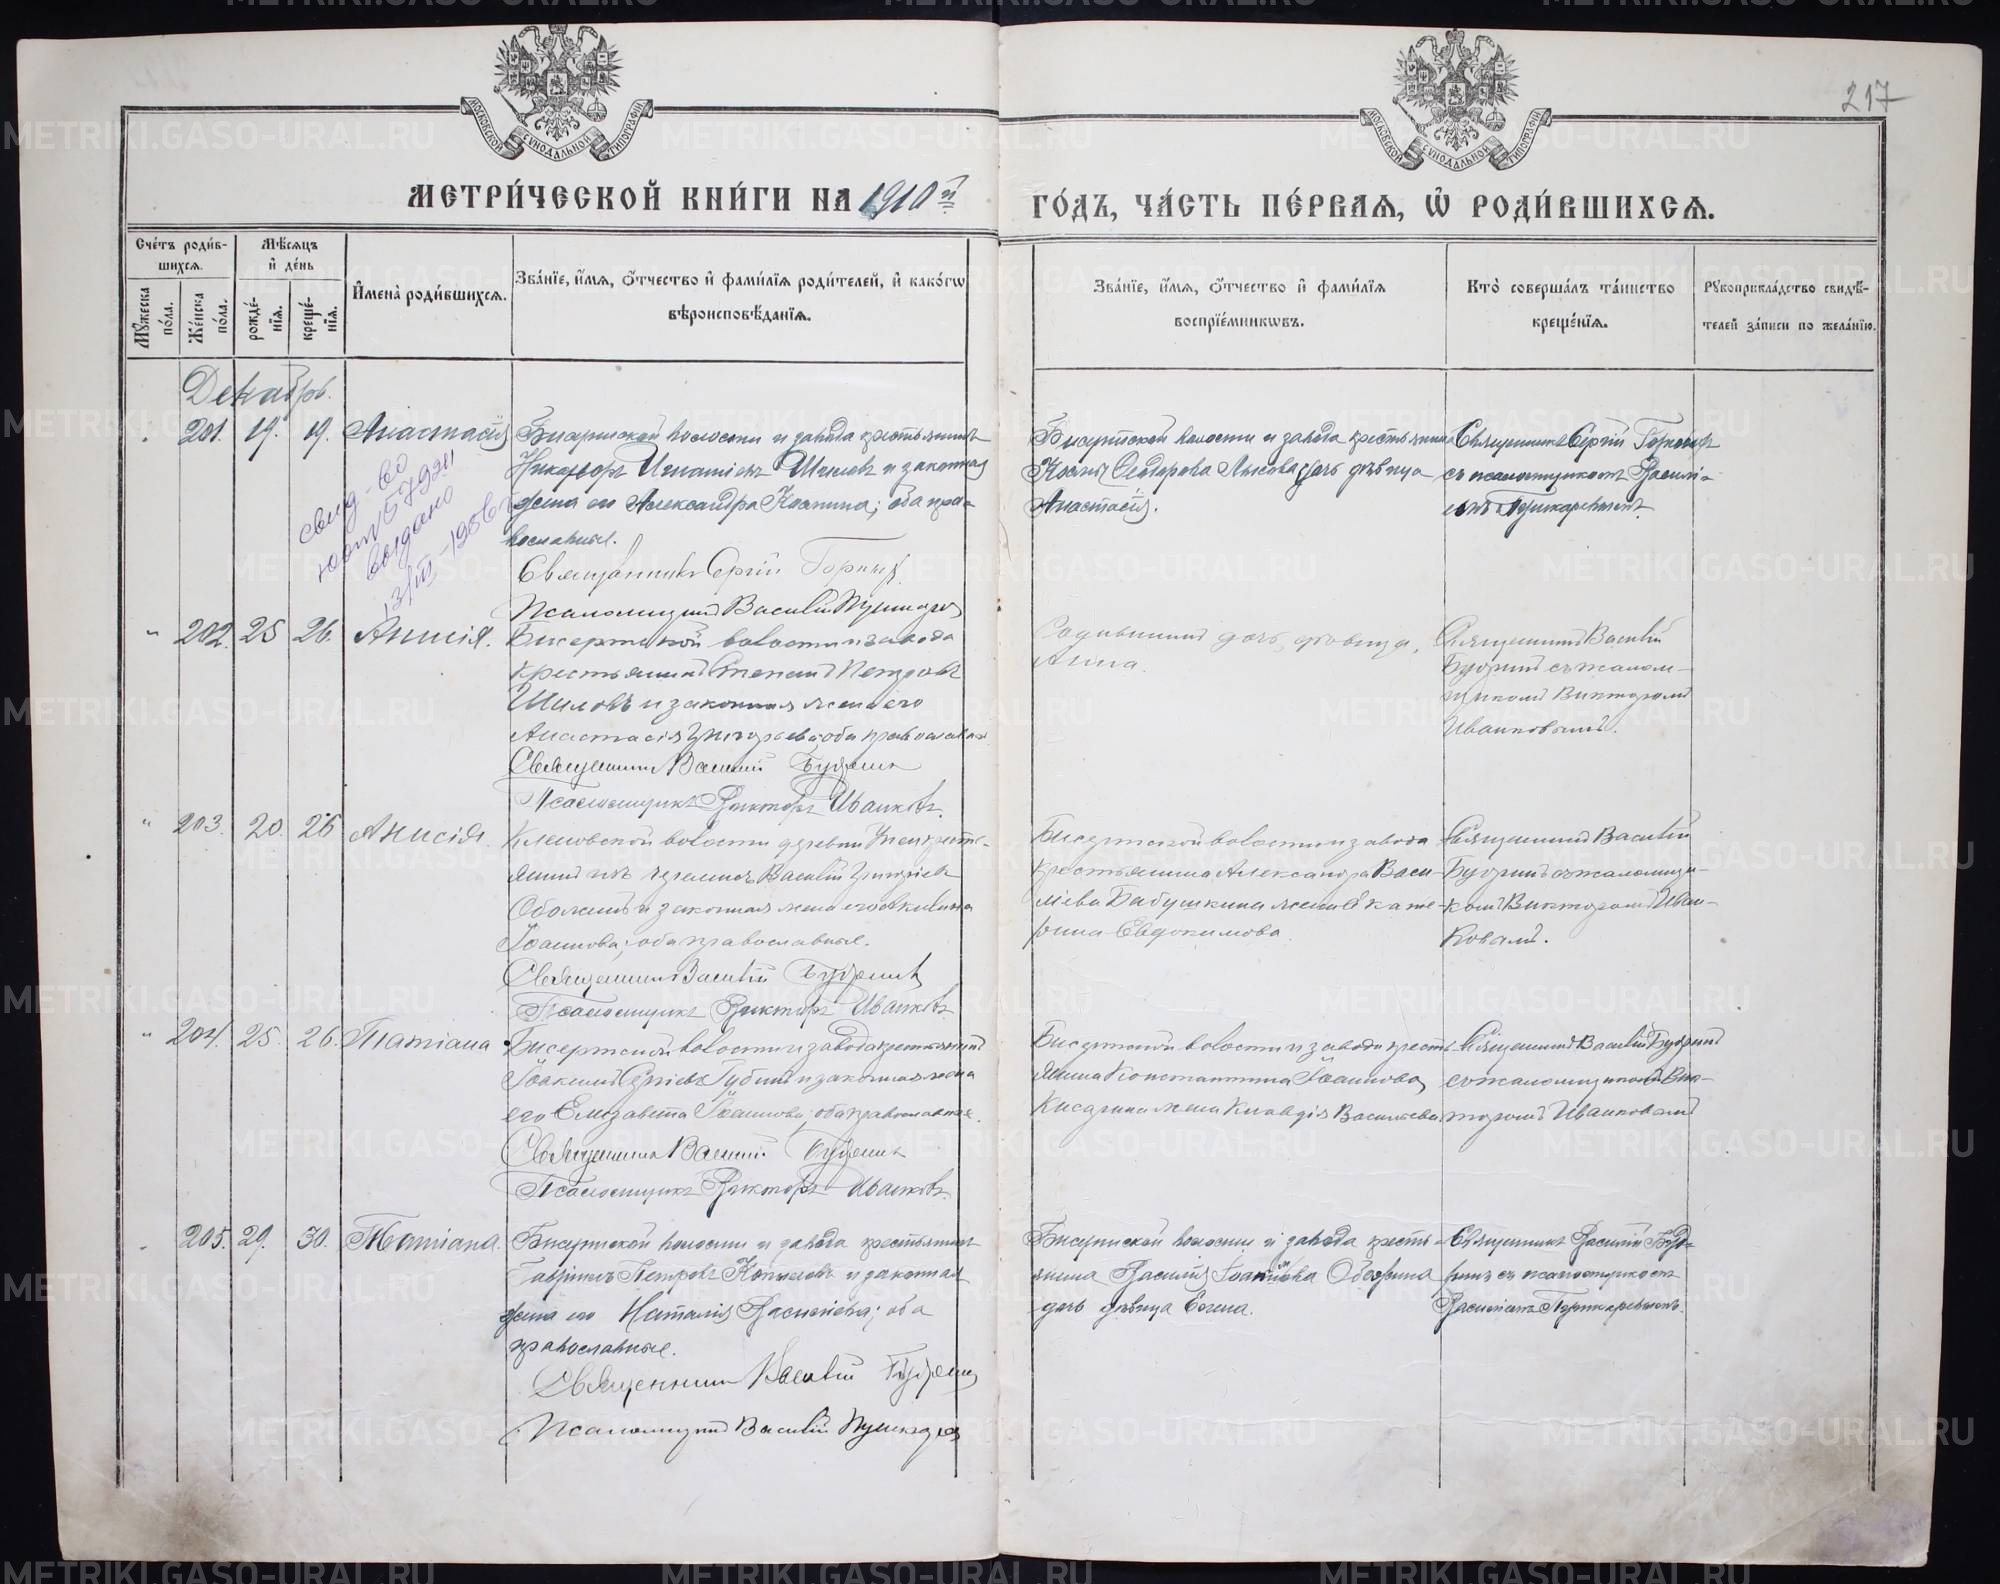 МОСКОВСКОЙ СѴНОДАЛЬНОЙ ТИПОГРАФІИ
МОСКОВСКОЙ СѴНОДАЛЬНОЙ ТИПОГРАФІИ
217
МЕТРИ́ЧЕСКОЙ КНИ́ГИ НА 1910 й
ГО́ДЪ, ЧА́СТЬ ПЕ́РВАѦ, Ѡ҆ РОДИ́ВШИХСѦ.
Сче́тъ роди́в-
шихсѧ.
Мѣ́сѧцъ
и҆ де́нь
Мꙋ́жеска
по́ла.
Же́нска
по́ла.
рожде́-
нїѧ.
креще́-
нїѧ.
И҆мена̀ роди́вшихсѧ.
Зва́нїе, и҆́мѧ, ѻ҆́тчество и҆ фами́лїѧ роди́телей, и҆ како́гѡ
вѣроисповѣ́данїѧ.
Зва́нїе, и҆́мѧ, ѻ҆́тчество и҆ фами́лїѧ
воспрїе́мникѡвъ.
Кто̀ соверша́лъ та́инство
креще́нїѧ.
Рꙋкоприкла́дство свидѣ́-
телей за́писи по жела́нїю.
Декабрь.
201. 19. 19. Анастасія
Бисертской волости и завода крестьянинъ
Никифоръ Игнатіевъ Шиловъ и законная
жена его Александра Косьмина; оба пра-
вославные.
Священникъ Сергій
Псаломщикъ Василій
Бисертской волости и завода крестьянина
Косьмы Ѳеодорова Лысова дочь дѣвица
Анастасія.
Священникъ Сергій
съ псаломщикомъ Василі-
емъ
свид-во
выдано
13/III-1956 г
" 202. 25 26. Анисія.
Бисертской волости и завода
крестьянинъ Степанъ Петровъ
Шиловъ и законная жена его
Анастасія Григорьева; оба православные
Священникъ Василій Будринъ
Псаломщикъ Викторъ Иванковъ.
дочь, дѣвица,
Анна.
Священникъ Василій
Будринъ съ псалом-
щикомъ Викторомъ
Иванковымъ.
" 203. 20. 26 Анисія.
Кленовской волости деревни
Василій Григоріевъ
и законная жена его Акилина
Іоаннова; оба православные.
Священникъ Василій Будринъ
Псаломщикъ Викторъ Иванковъ.
Бисертской волости и завода
крестьянина Александра Васи-
ліева Бабушкина жена Екате-
рина Евдокимова.
Священникъ Василій
Будринъ съ псаломщи-
комъ Викторомъ Иван-
ковымъ.
" 204. 25. 26. Татіана
Бисертской волости и завода крестьянинъ
Іоакимъ Сергіевъ Губинъ и законная жена
его Елизавета Іоаннова; оба православные.
Священникъ Василій Будринъ
Псаломщикъ Викторъ Иванковъ.
Бисертской волости и завода кресть-
янина Константина Іоаннова
жена Клавдія Васильева
Священникъ Василій Будринъ
съ псаломщикомъ Вик-
торомъ Иванковымъ
205. 29. 30. Татіана.
Бисертской волости и завода крестьянинъ
Гавріилъ Петровъ Копыловъ и законная
жена его Наталія Васильева; оба
православные.
Священникъ Василій Будринъ
Псаломщикъ Василій
Бисертской волости и завода кресть-
янина Василія Іоаннова
дочь дѣвица
Священникъ Василій Буд-
ринъ съ псаломщикомъ
Василіемъ
METRIKI.GASO-URAL.RU